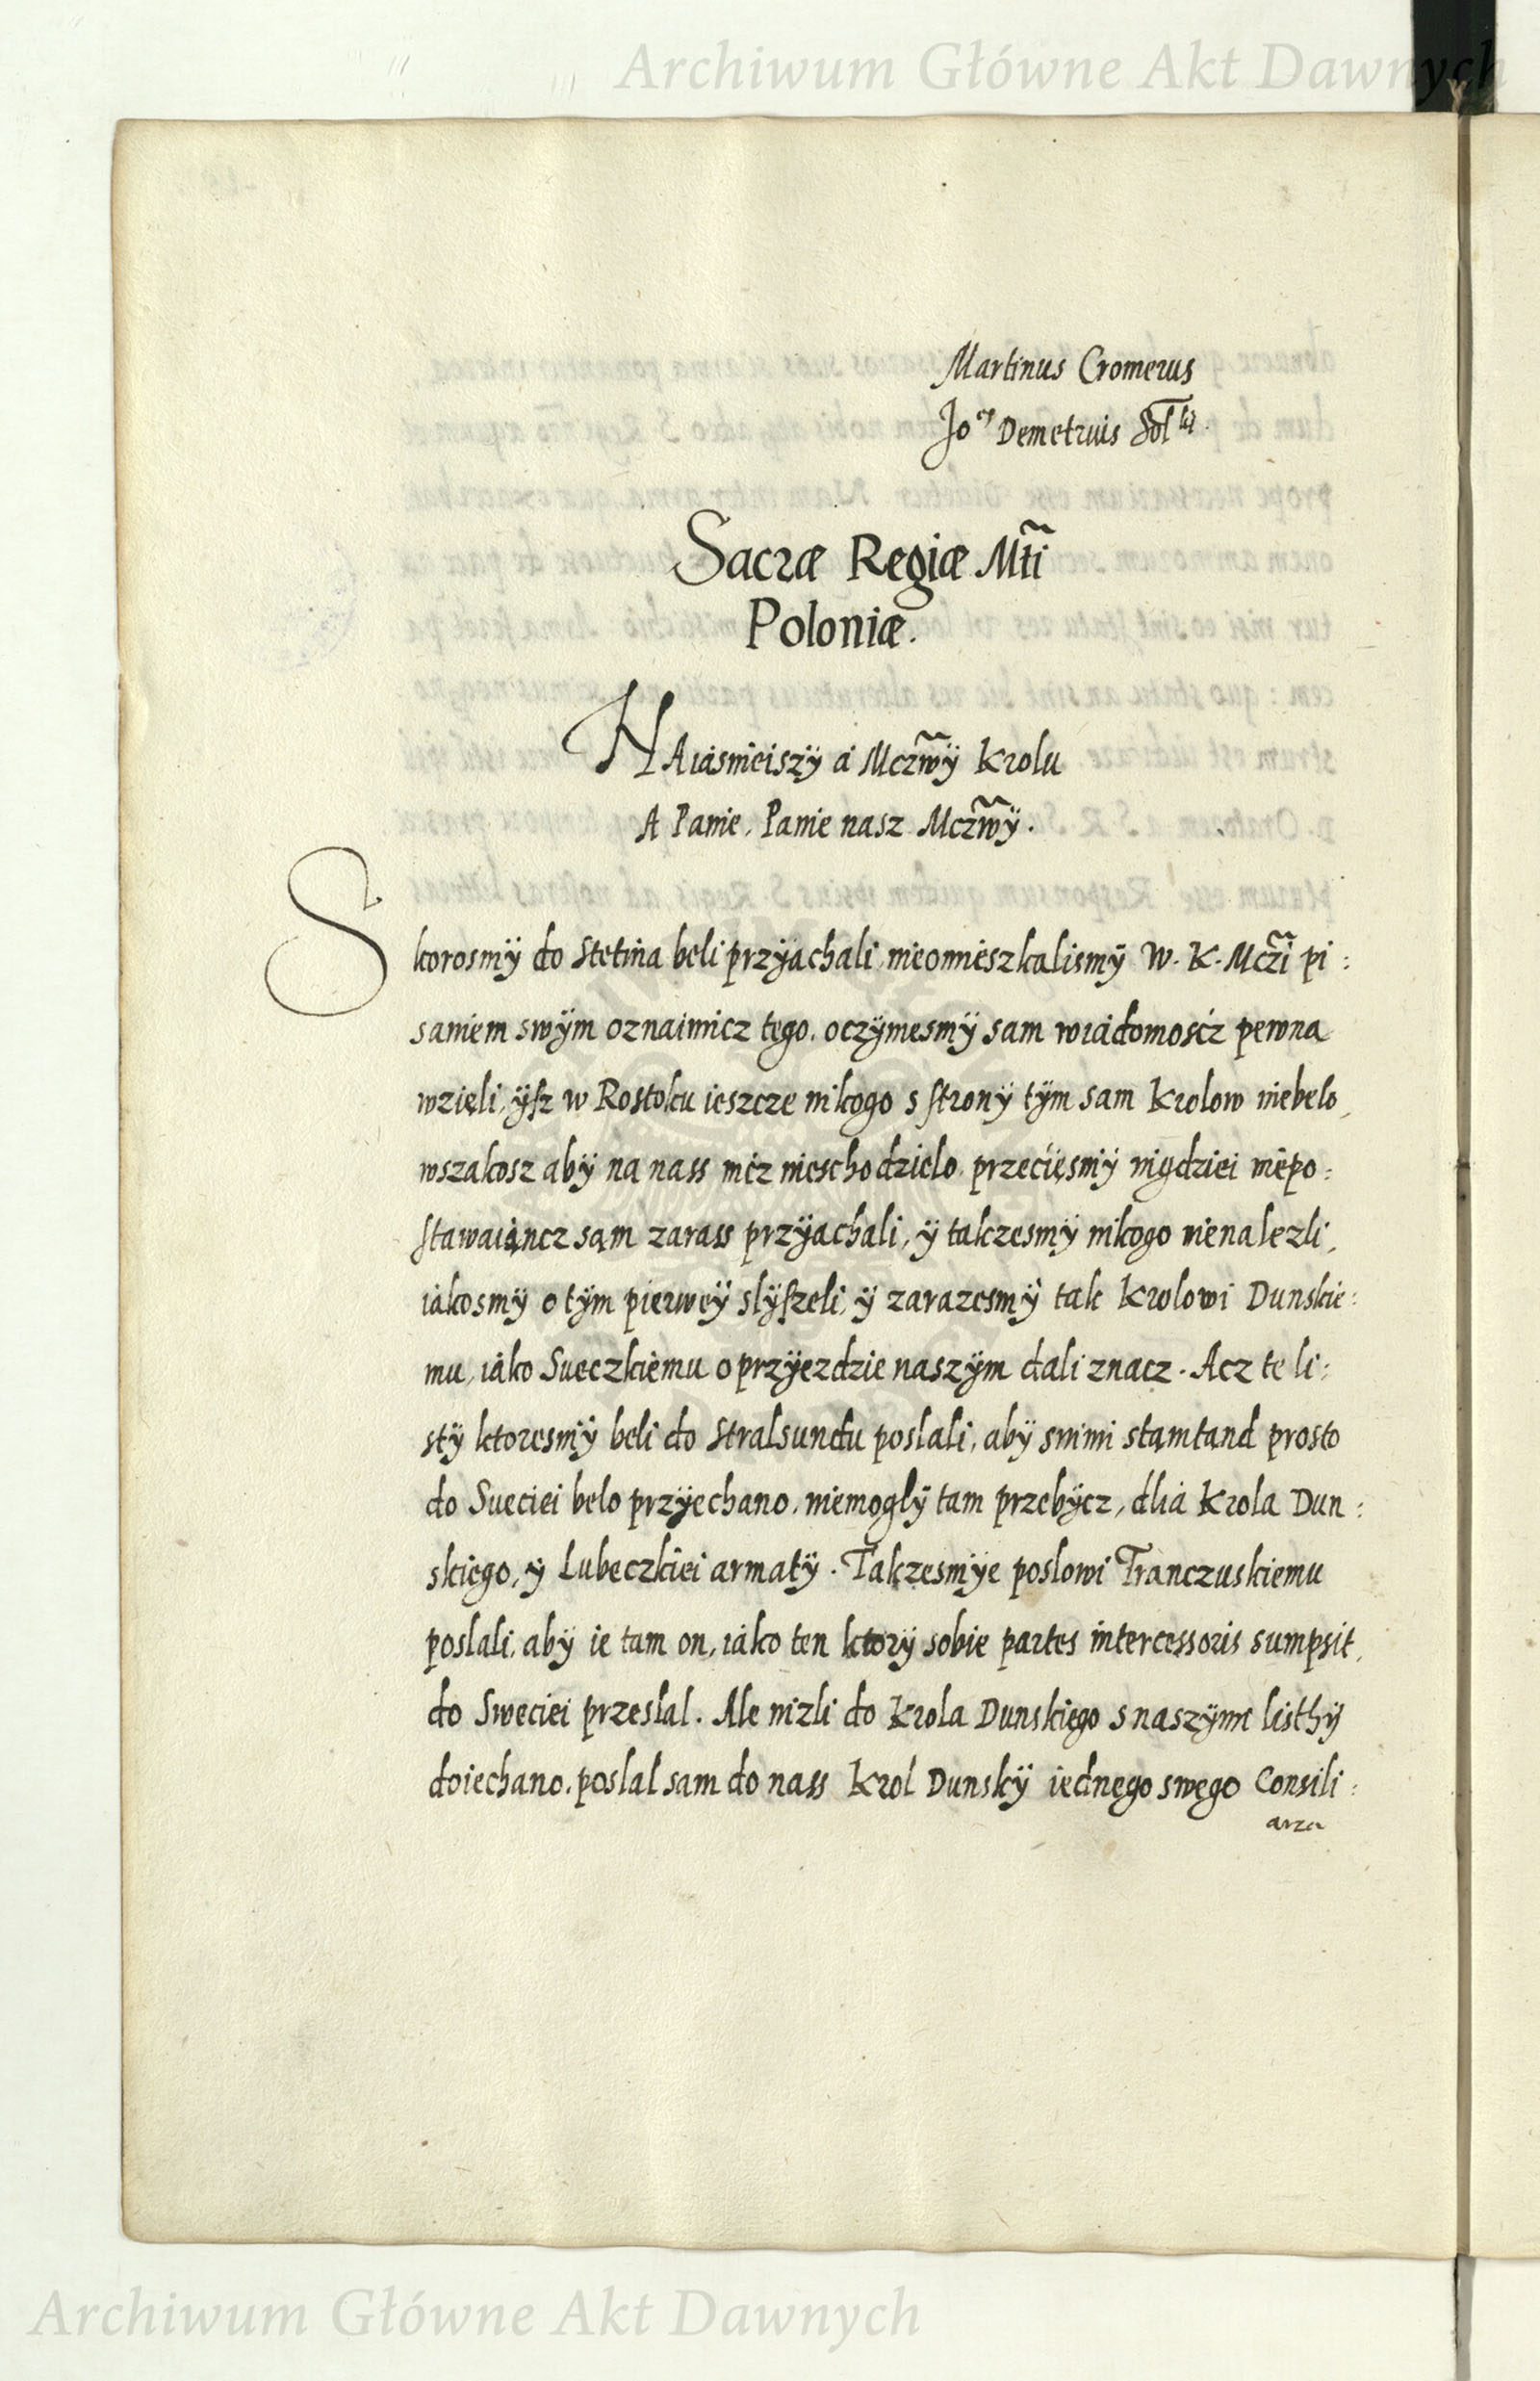 Archiwum Główne Akt Dawnych
Martinus Cromerus
Jo Demetrius Sol
Sacræ Regiæ Mti
Poloniæ.
NAiásnieiszÿ á Mczwÿ Krolu
A Panie, Panie nasz Mczwÿ.
Skorosmÿ do Stetina beli przÿachali, nieomieszkalismÿ W. K. Mczi pi:
saniem swÿm oznaimicz tego, oczÿmesmÿ sam wiádomosćz pewna
wzięli, ÿsz w Rostoku ieszcze nikogo s stronÿ tÿm sam Krolow niebelo,
wszakosz abÿ na nass nicz nieschodzielo, przećięsmÿ nigdziei niepo:
stawaiąncz sąm zarass przÿachali, ÿ takzesmÿ nikogo nienalezli,
iákosmÿ o tÿm pierweÿ slÿszeli, ÿ zarazesmÿ tak Krolowi Dunskie:
mu, iáko Sueczkiemu o przÿezdzie naszÿm dali znacz. Acz te li:
stÿ ktoresmÿ beli do Stralsundu poslali, abÿ snimi stąmtand prosto
do Sueciei belo przÿechano, niemoglÿ tam przebÿcz, dliá Krola Dun:
skiego, ÿ Lubeczkiei armatÿ. Takzesmÿe poslowi Franczuskiemu
poslali, abÿ ie tam on, iáko ten ktorÿ sobie partes intercessoris sumpsit,
do Sweciei przeslal. Ale nizli do Krola Dunskiego s naszÿmi listhÿ
doiechano, poslal sam do nass Krol Dunskÿ iednego swego Consili:
arza
Archiwum Główne Akt Dawnych